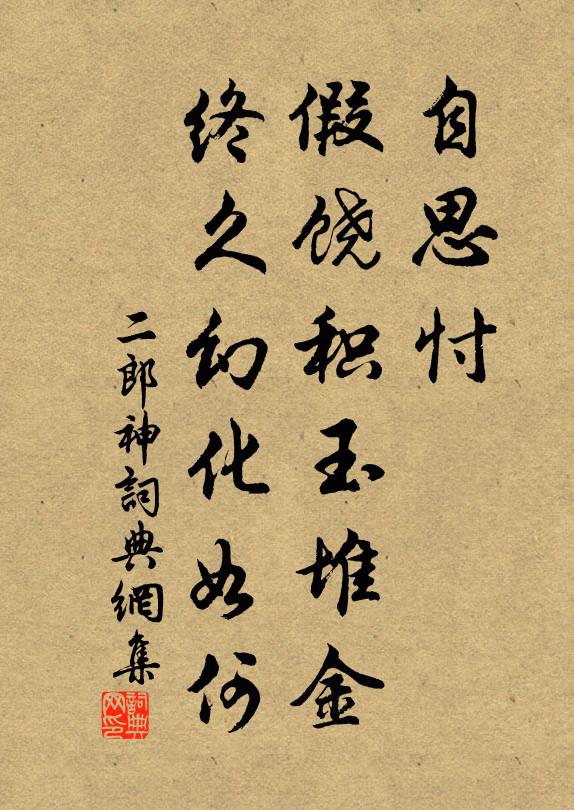 自思忖
假饶积玉堆金
终久幻化如何
二郎神詞典網集
詞典
网印